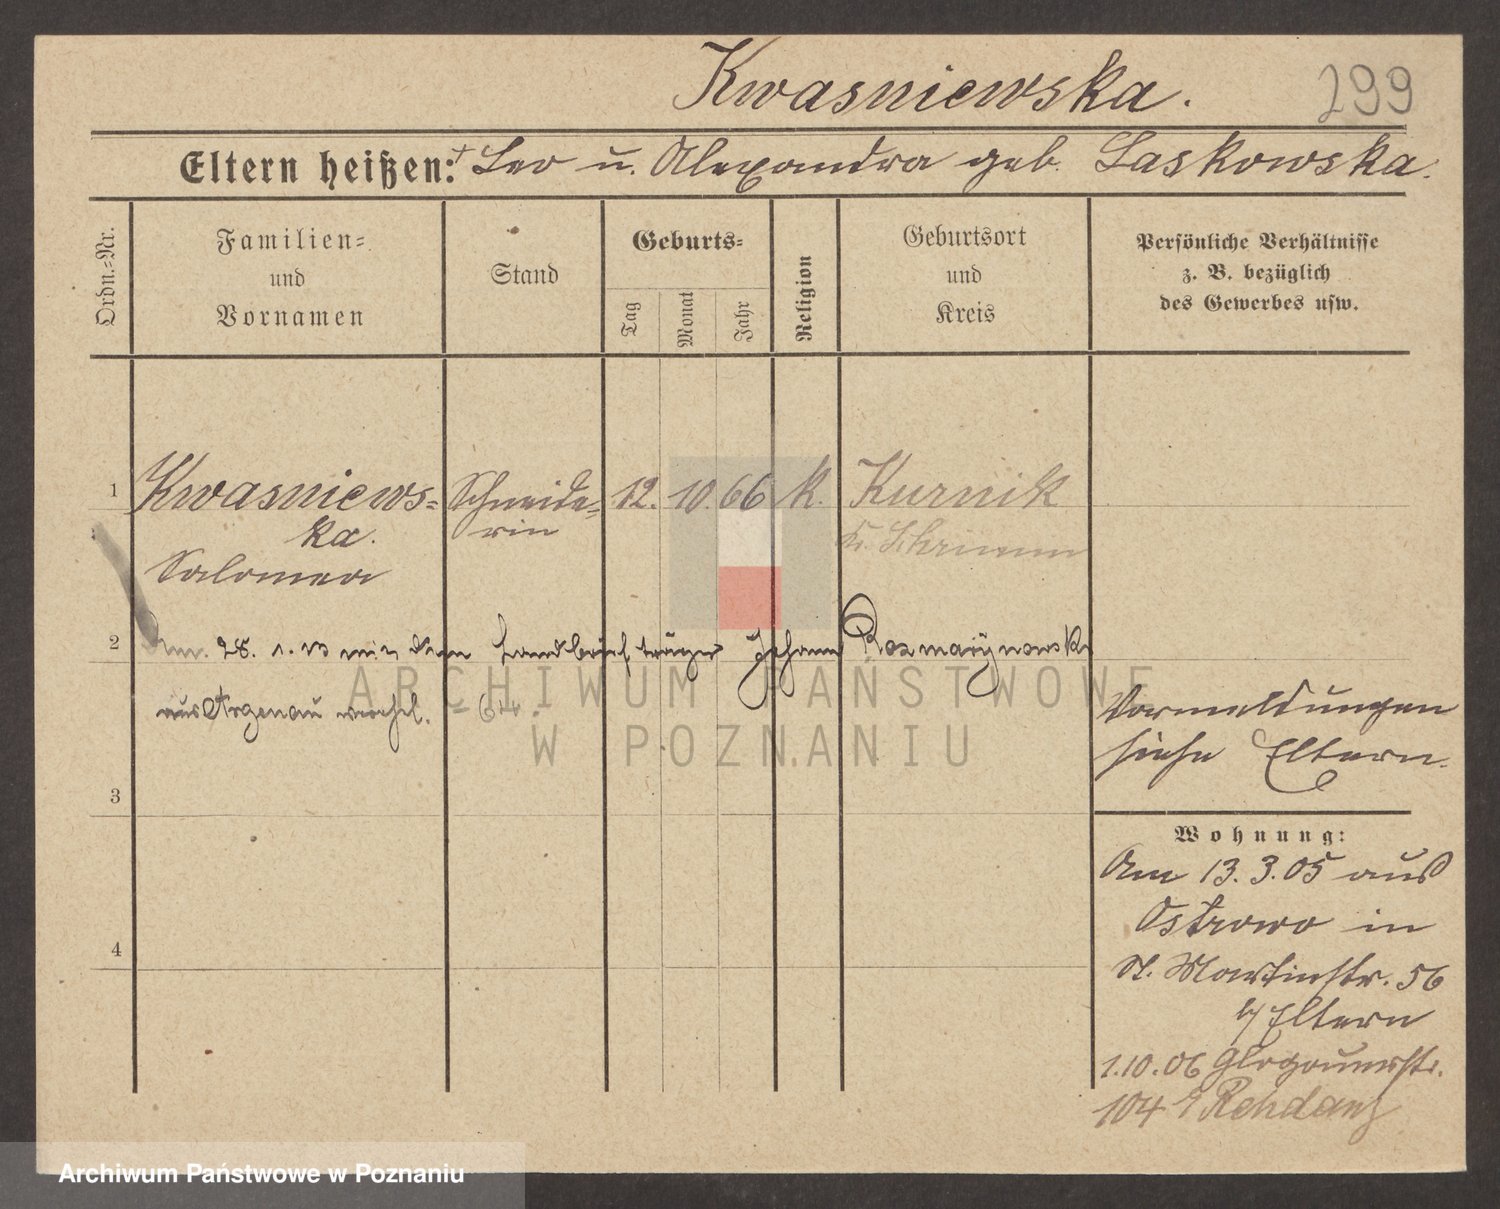 Kwasniewska.
299
Eltern heißen: + Leo u. Alexandra geb. Laskowska.
Ordn.=Nr.
Familien=
und
Vornamen
Stand
Geburts=
Tag
Monat
Jahr
Religion
Geburtsort
und
Kreis
Persönliche Verhältnisse
z. B. bezüglich
des Gewerbes usw.
1 Kwasniews= Schneide= 12. 10. 66 k. Kurnik
ka. rin Kr. Schrimm
Salomea
2 Am. 28. 1. 13 mit dem Landbriefträger Johann Rozmarynowski
aus Argenau verehel.
ARCHIWUM PAŃSTWOWE
W POZNANIU
Vormeldungen
siehe Eltern.
3
Wohnung:
Am 13. 3. 05 aus
Ostrowo in
4
St. Martinstr. 56
b/ Eltern
1.10.06 Glogauerstr.
104 Rehdanz
Archiwum Państwowe w Poznaniu